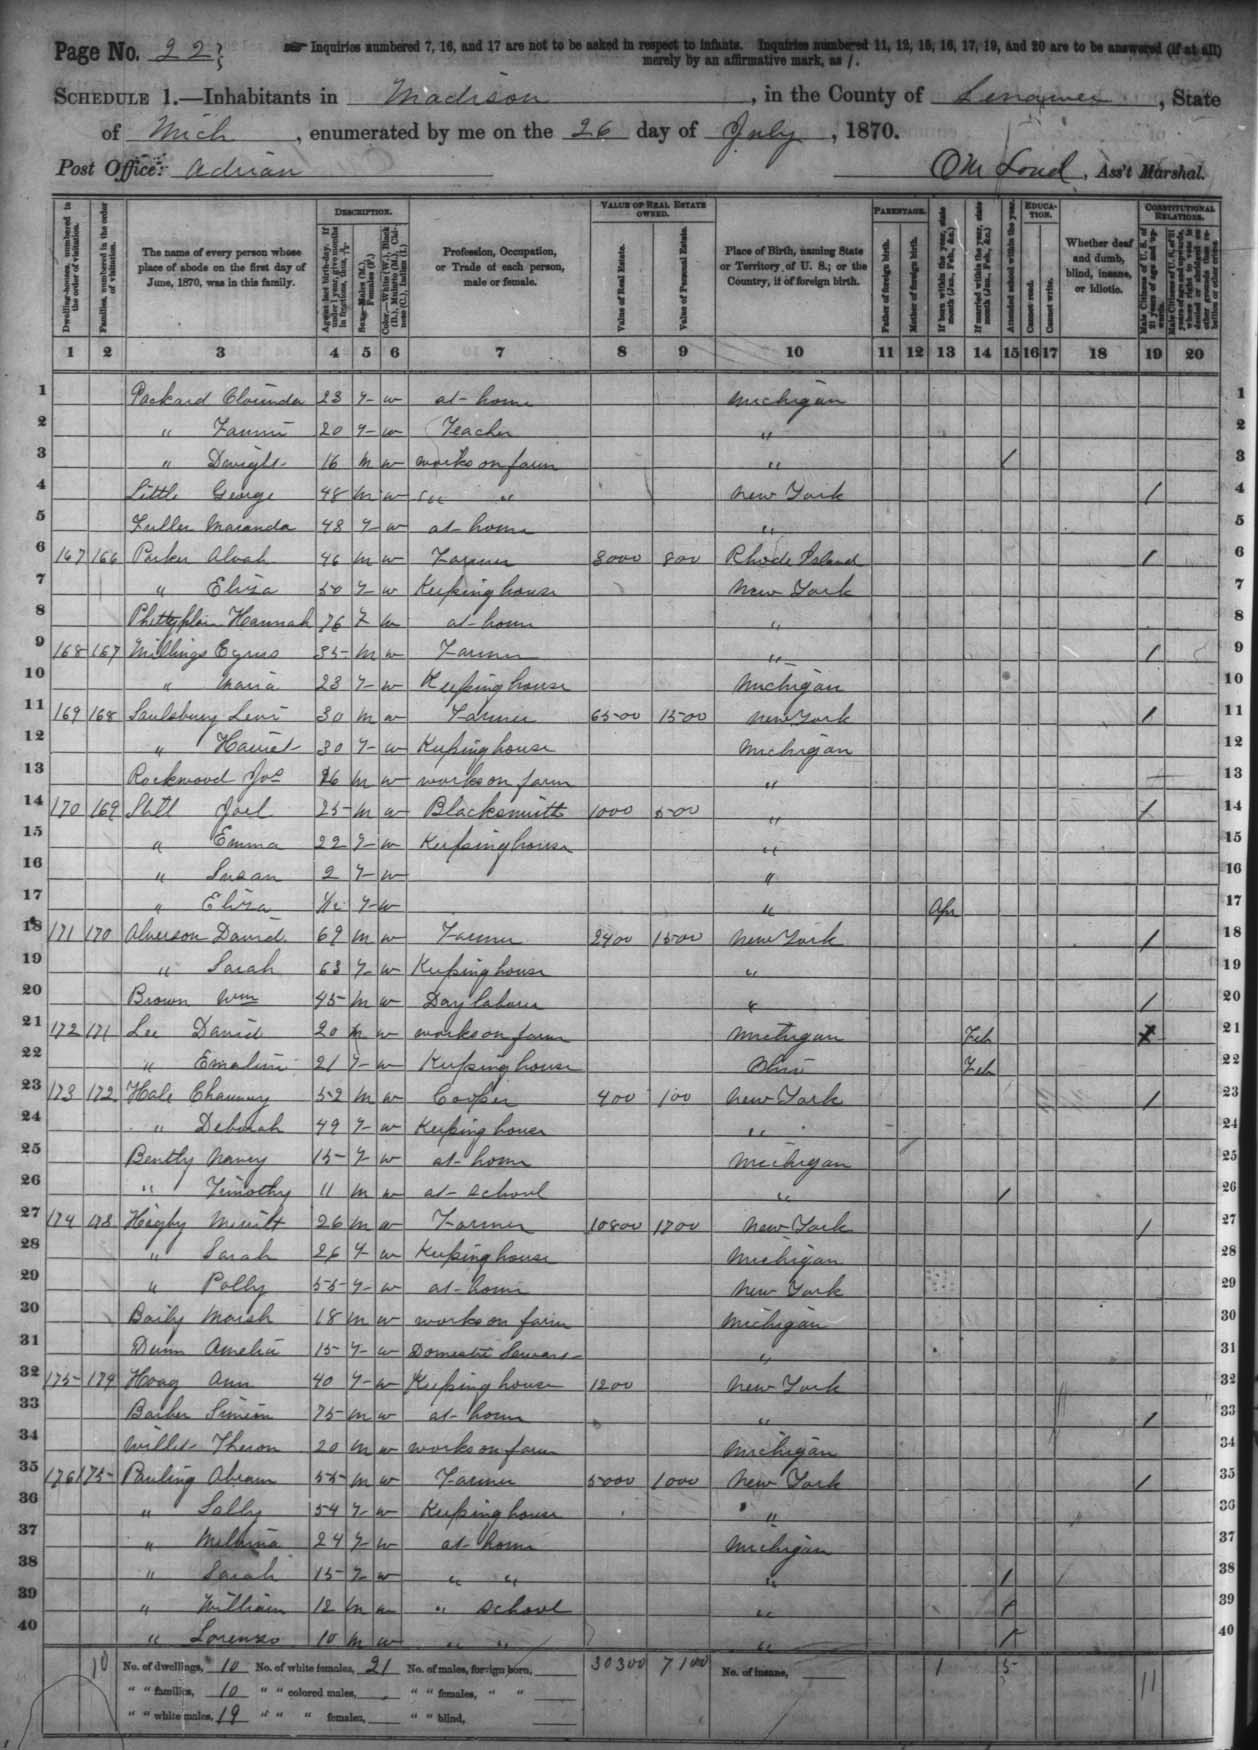 Page No. 22
Inquiries numbered 7, 16, and 17 are not to be asked in respect to infants. Inquiries numbered 11, 12, 15, 16, 17, 19, and 20 are to be answered (if at all)
merely by an affirmative mark, as /.
Schedule 1.—Inhabitants in Madison, in the County of Lenawee, State
of Mich, enumerated by me on the 26 day of July, 1870.
Post Office: Adrian
OM Loud, Ass't Marshal.
Dwelling-houses, numbered in the order of visitation.
Families, numbered in the order of visitation.
The name of every person whose place of abode on the first day of June, 1870, was in this family.
Description.
Age at last birth-day. If under 1 year, give months in fractions, thus, 3/12
Sex.—Males (M.), Females (F.)
Color.—White (W.), Black (B.), Mulatto (M.), Chinese (C.), Indian (I.)
Profession, Occupation, or Trade of each person, male or female.
Value of Real Estate owned.
Value of Real Estate.
Value of Personal Estate.
Place of Birth, naming State or Territory of U. S.; or the Country, if of foreign birth.
Parentage.
Father of foreign birth.
Mother of foreign birth.
If born within the year, state month (Jan., Feb., &c.)
If married within the year, state month (Jan., Feb., &c.)
Education.
Attended school within the year.
Cannot read.
Cannot write.
Whether deaf and dumb, blind, insane, or idiotic.
Constitutional Relations.
Male Citizens of U. S. of 21 years of age and upwards.
1 2 3 4 5 6 7 8 9 10 11 12 13 14 15 16 17 18 19 20
1 Packard Clorinda 23 F W at home Michigan 1
2 " Fannie 20 F W Teacher " 2
3 " Dwight 16 M W works on farm " / 3
4 Little George 48 M W " " New York / 4
5 Fuller Maranda 48 F W at home " 5
6 167 166 Parker Alvah 46 M W Farmer 3000 800 Rhode Island / 6
7 " Eliza 50 F W Keeping house New York 7
8 Hannah 76 F W at home " 8
9 168 167 Millings Cyrus 35 M W Farmer " / 9
10 " Maria 23 F W Keeping house Michigan 10
11 169 168 Saulsbury Levi 30 M W Farmer 6500 1500 New York / 11
12 " Harriet 30 F W Keeping house Michigan 12
13 Rockwood Jos 26 M W works on farm " 13
14 170 169 Joel 25 M W Blacksmith 1000 500 " / 14
15 " Emma 22 F W Keeping house " 15
16 " Susan 2 F W " 16
17 " Eliza F W " Apr 17
18 171 170 Alverson David 69 M W Farmer 2400 1500 New York / 18
19 " Sarah 63 F W Keeping house " 19
20 Brown Wm 45 M W Day laborer " / 20
21 172 171 Lee Daniel 20 M W works on farm Michigan Feb 21
22 " Emaline 21 F W Keeping house Ohio Feb 22
23 173 172 Hale Chauncy 52 M W Cooper 400 100 New York / 23
24 " Deborah 49 F W Keeping house " 24
25 Bently Nancy 15 F W at home Michigan 25
26 " Timothy 11 M W at school " / 26
27 174 173 Higby Merritt 26 M W Farmer 10800 1700 New York / 27
28 " Sarah 26 F W Keeping house Michigan 28
29 " Polly 55 F W at home New York 29
30 Baily Marsh 18 M W works on farm Michigan 30
31 Dunn Amelia 15 F W Domestic Servant " 31
32 175 174 Hoag Ann 40 F W Keeping house 1200 New York 32
33 Barber Simeon 75 M W at home " / 33
34 Willet Theron 20 M W works on farm Michigan 34
35 176 175 Pauling Abram 55 M W Farmer 5000 1000 New York / 35
36 " Sally 54 F W Keeping house " 36
37 " Melvina 24 F W at home Michigan 37
38 " Sarah 15 F W " " " / 38
39 " William 12 M W " school " / 39
40 " Lorenzo 10 M W " " " / 40
10 No. of dwellings, 10 No. of white females, 21 No. of males, foreign born, 30300 7100 No. of insane, 1 5 11
" " families, 10 " " colored males, " " females, " "
" " white males, 19 " " " females, " " blind,